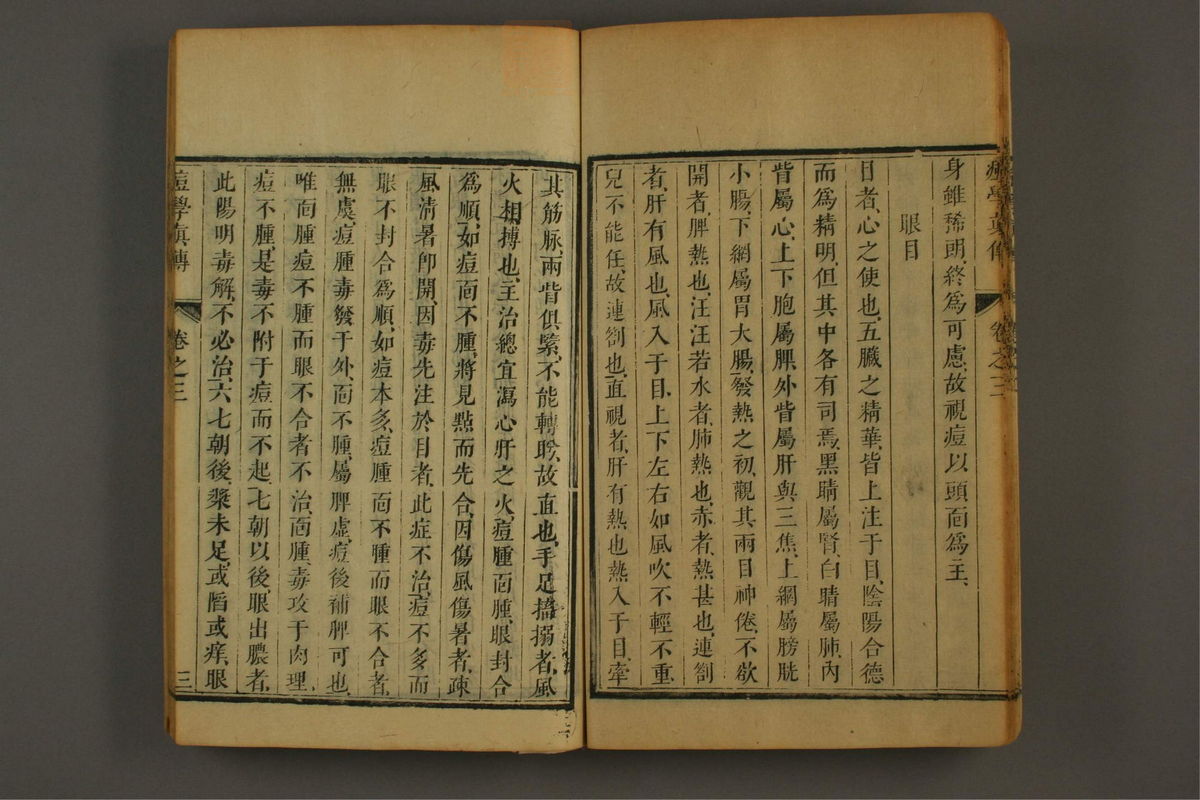 痘學真傳 卷之三
身雖稀朗、終爲可慮、故視痘以頭面爲主、
眼目
目者、心之使也、五臟之精華、皆上注于目、陰陽合德
而爲精明、但其中各有司焉、黑睛屬腎、白睛屬肺、內
眥屬心、上下胞屬脾、外眥屬肝與三焦、上網屬膀胱
小腸、下網屬胃大腸、發熱之初、觀其兩目神倦、不欲
開者、脾熱也、汪汪若水者、肺熱也、赤者、熱甚也、連劄
者、肝有風也、風入于目、上下左右如風吹不輕不重
兒不能任、故連劄也、直視者、肝有熱也、熱入于目、牽
其筋脉、兩眥俱緊、不能轉盼、故直也、手足搐搦者、風
火相摶也、主治總宜瀉心肝之火、痘腫面腫、眼封合
爲順、如痘面不腫、將見點而先合、因傷風傷暑者、疎
風清暑卽開、因毒先注於目者、此症不治、痘不多而
眼不封合爲順、如痘本多、痘腫面不腫而眼不合者、
無虞、痘腫毒發于外、面不腫、屬脾虛、痘後補脾可也、
唯面腫痘不腫而眼不合者不治、面腫、毒攻于肉理、
痘不腫、是毒不附于痘而不起、七朝以後、眼出膿者、
此陽明毒解、不必治、六七朝後、漿未足、或陷或痒、眼
痘學真傳 卷之三 三